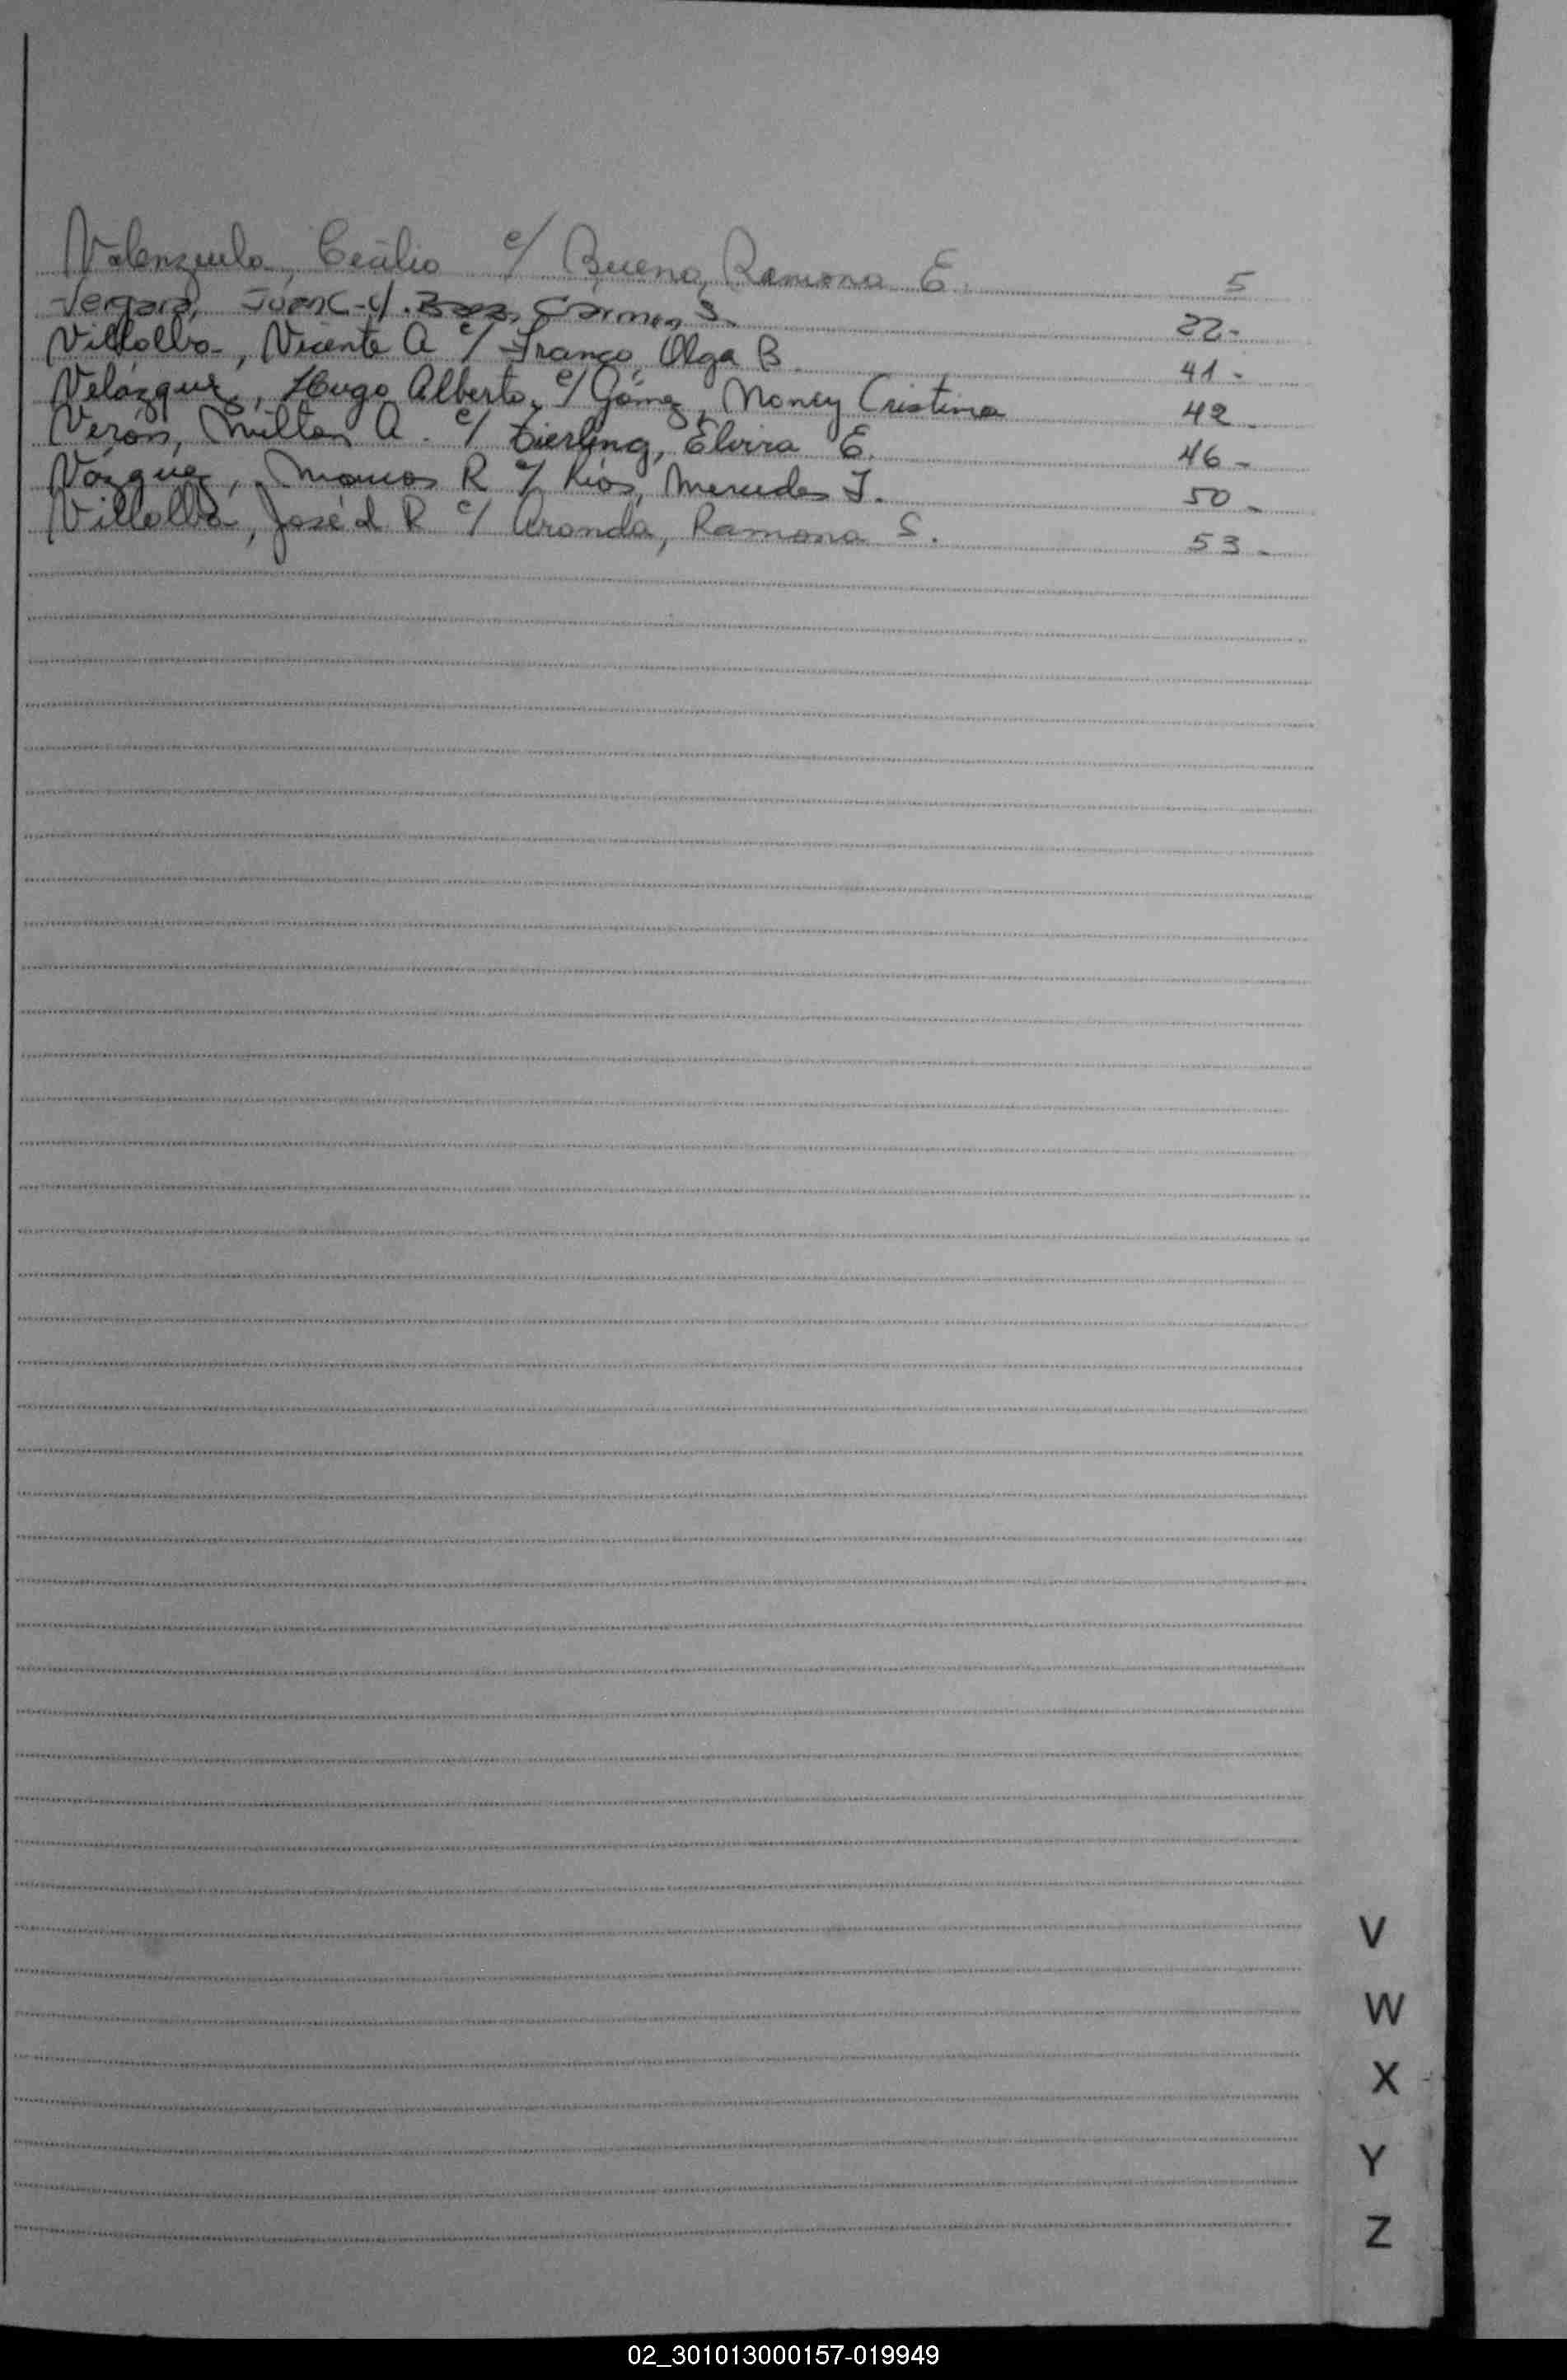 Valenzuela, Cecilio c/ Bueno, Ramona E. 5
Vergara, Juan C - y . Carmen S. 22-
Villalba, Vicente A c/ Franco, Olga B. 41-
Velázquez, Hugo Alberto, c/ Gómez, Nancy Cristina 42-
Verón, Milton A. c/ Zierling, Elvira E. 46-
Vázquez, Marcos R c/ Ríos, Mercedes I. 50-
Villalba, José d R c/ Aranda, Ramona S. 53-
V
W
X
Y
Z
02_301013000157-019949